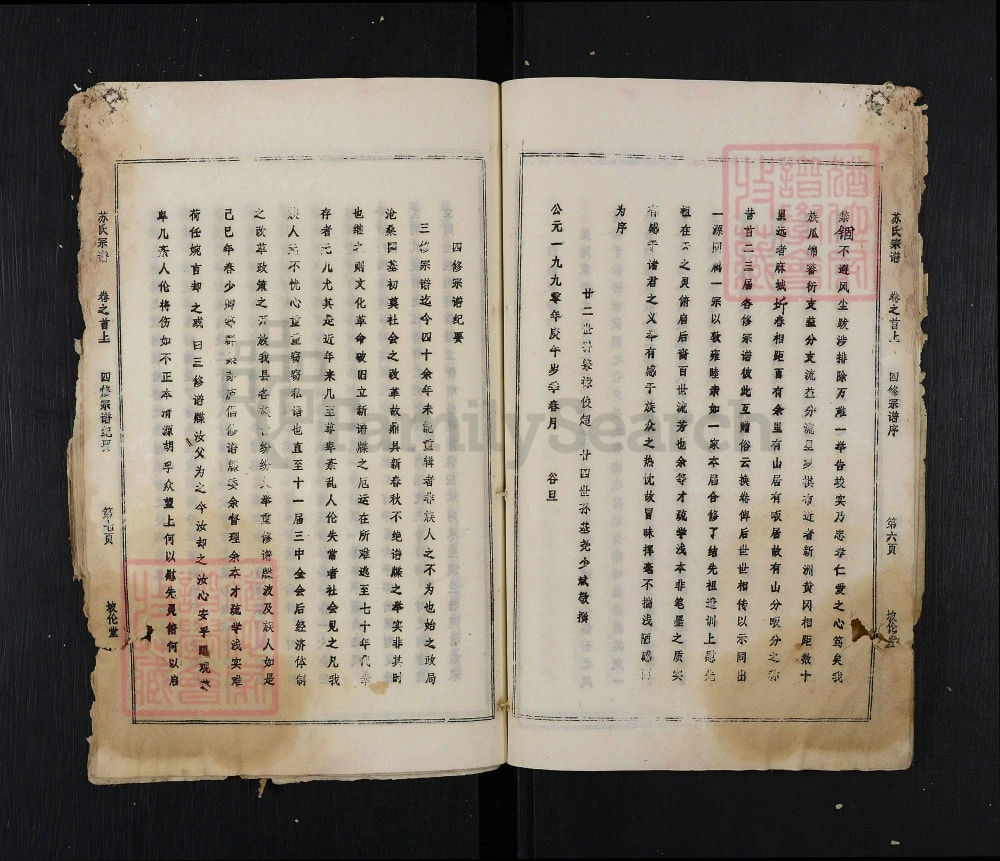 苏氏宗谱 卷之首上 四修宗谱序 第六页 坡伦堂
禁锢不遐风尘跋涉排除万难一举告竣实乃忠孝仁爱之心笃矣我
族瓜绵蕃衍支益分支流益分流星罗棋布近者新洲黄冈相距数十
里远者麻城圻春相距百有余里有山居有畈居故有山分畈分之称
昔首二三届各修宗谱彼此互赠俗云换卷俾后世世相传以示同出
一源同属一宗以敦雍睦亲如一家本届合修了结先祖遗训上慰先
祖在天之灵俯启后裔百世流芳也余等才疏学浅本非笔墨之质实
有感于诸君之义举有感于族众之热忱故冒昧挥毫不揣浅陋
为序
廿二世孙 俊超 廿四世孙基尧少斌敬撰
公元一九九零年庚午岁季春月 谷旦
四修宗谱纪要
三修宗谱迄今四十余年未能重辑者非族人之不为也始之政局
沧桑国基初奠社会之改革故鼎具新春秋不绝谱牒之举实非其时
也继之则文化革命破旧立新谱牒之厄运在所难逃至七十年代幸
存者无几尤其是近年来几至尊卑紊乱人伦失常者社会见之凡我
族人无不忧心重重窃窃私语也直至十一届三中全会后经济体制
之改革政策之开放我县各族皆纷纷大举重修谱牒波及族人如是
己巳年春少卿 庐倡修谱牒委余督理余本才疏学浅实难
荷任婉言却之或曰三修谱牒汝父为之今汝却之汝心安乎
卑几紊人伦将伤如不正本清源胡乎众望上何以慰先灵俯何以启
苏氏宗谱 卷之首上 四修宗谱纪要 第七页 坡伦堂
FamilySearch